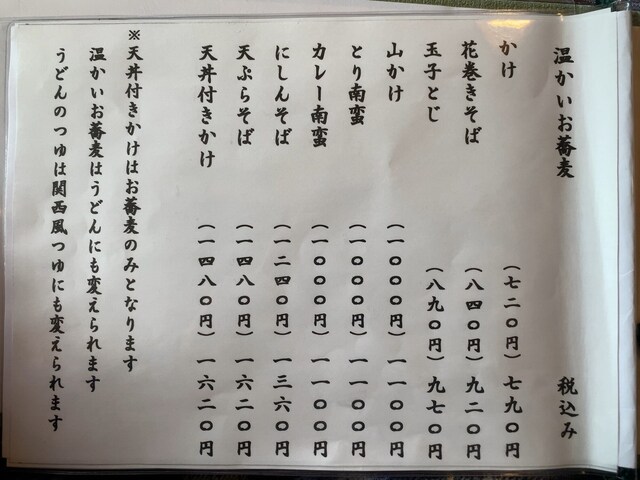 温かいお蕎麦 税込み
かけ (七二〇円) 七九〇円
花巻きそば (八四〇円) 九二〇円
玉子とじ (八九〇円) 九七〇円
山かけ (一〇〇〇円) 一一〇〇円
とり南蛮 (一〇〇〇円) 一一〇〇円
カレー南蛮 (一〇〇〇円) 一一〇〇円
にしんそば (一二四〇円) 一三六〇円
天ぷらそば (一四八〇円) 一六二〇円
天丼付きかけ (一四八〇円) 一六二〇円
※天丼付きかけはお蕎麦のみとなります
温かいお蕎麦はうどんにも変えられます
うどんのつゆは関西風つゆにも変えられます